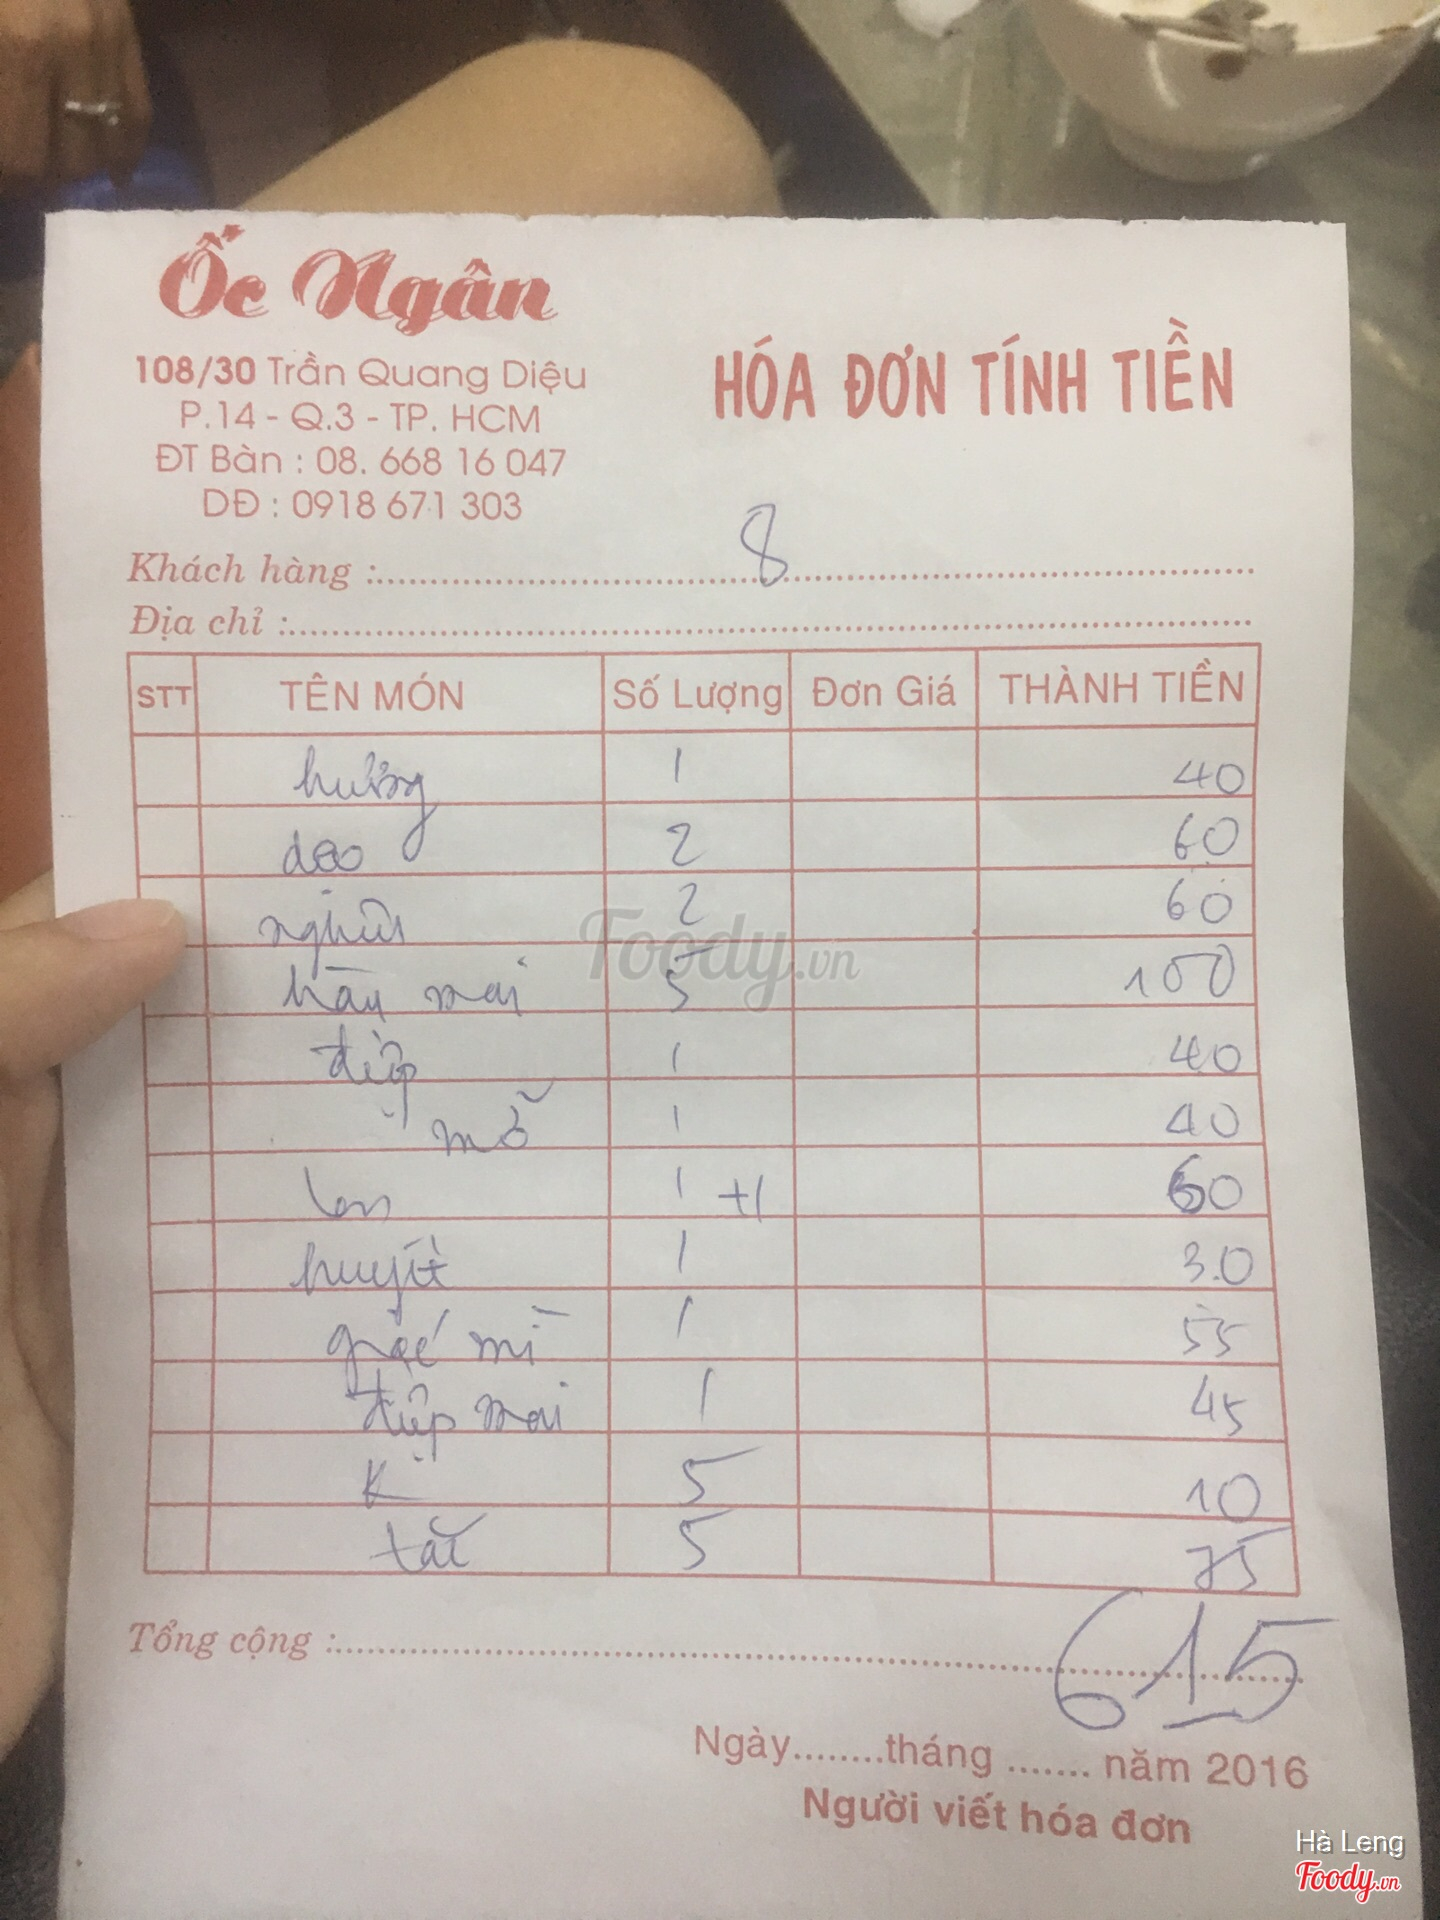 Ốc Ngân
108/30 Trần Quang Diệu
P.14 - Q.3 - TP. HCM
ĐT Bàn : 08. 668 16 047
DĐ : 0918 671 303
HÓA ĐƠN TÍNH TIỀN
Khách hàng : 8
Địa chỉ :
STT TÊN MÓN Số Lượng Đơn Giá THÀNH TIỀN
hương 1 40
deo 2 60
nghêu 2 60
hàu mai 5 100
điệp 1 40
mỡ 1 40
len 1 +1 60
huyết 1 30
giác mì 1 55
điệp mai 1 45
K 5 10
tắc 5 75
Tổng cộng : 615
Ngày........tháng ....... năm 2016
Người viết hóa đơn
Foody.vn
Hà Leng
Foody.vn